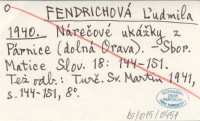 FENDRICHOVÁ Ľudmila
1940. Nárečové ukážky z
Párnice (dolná Orava). - Sbor.
Matice Slov. 18: 144-151.
Tež odb.: Turč. Sv. Martin 1941,
s. 144-151, 8°.